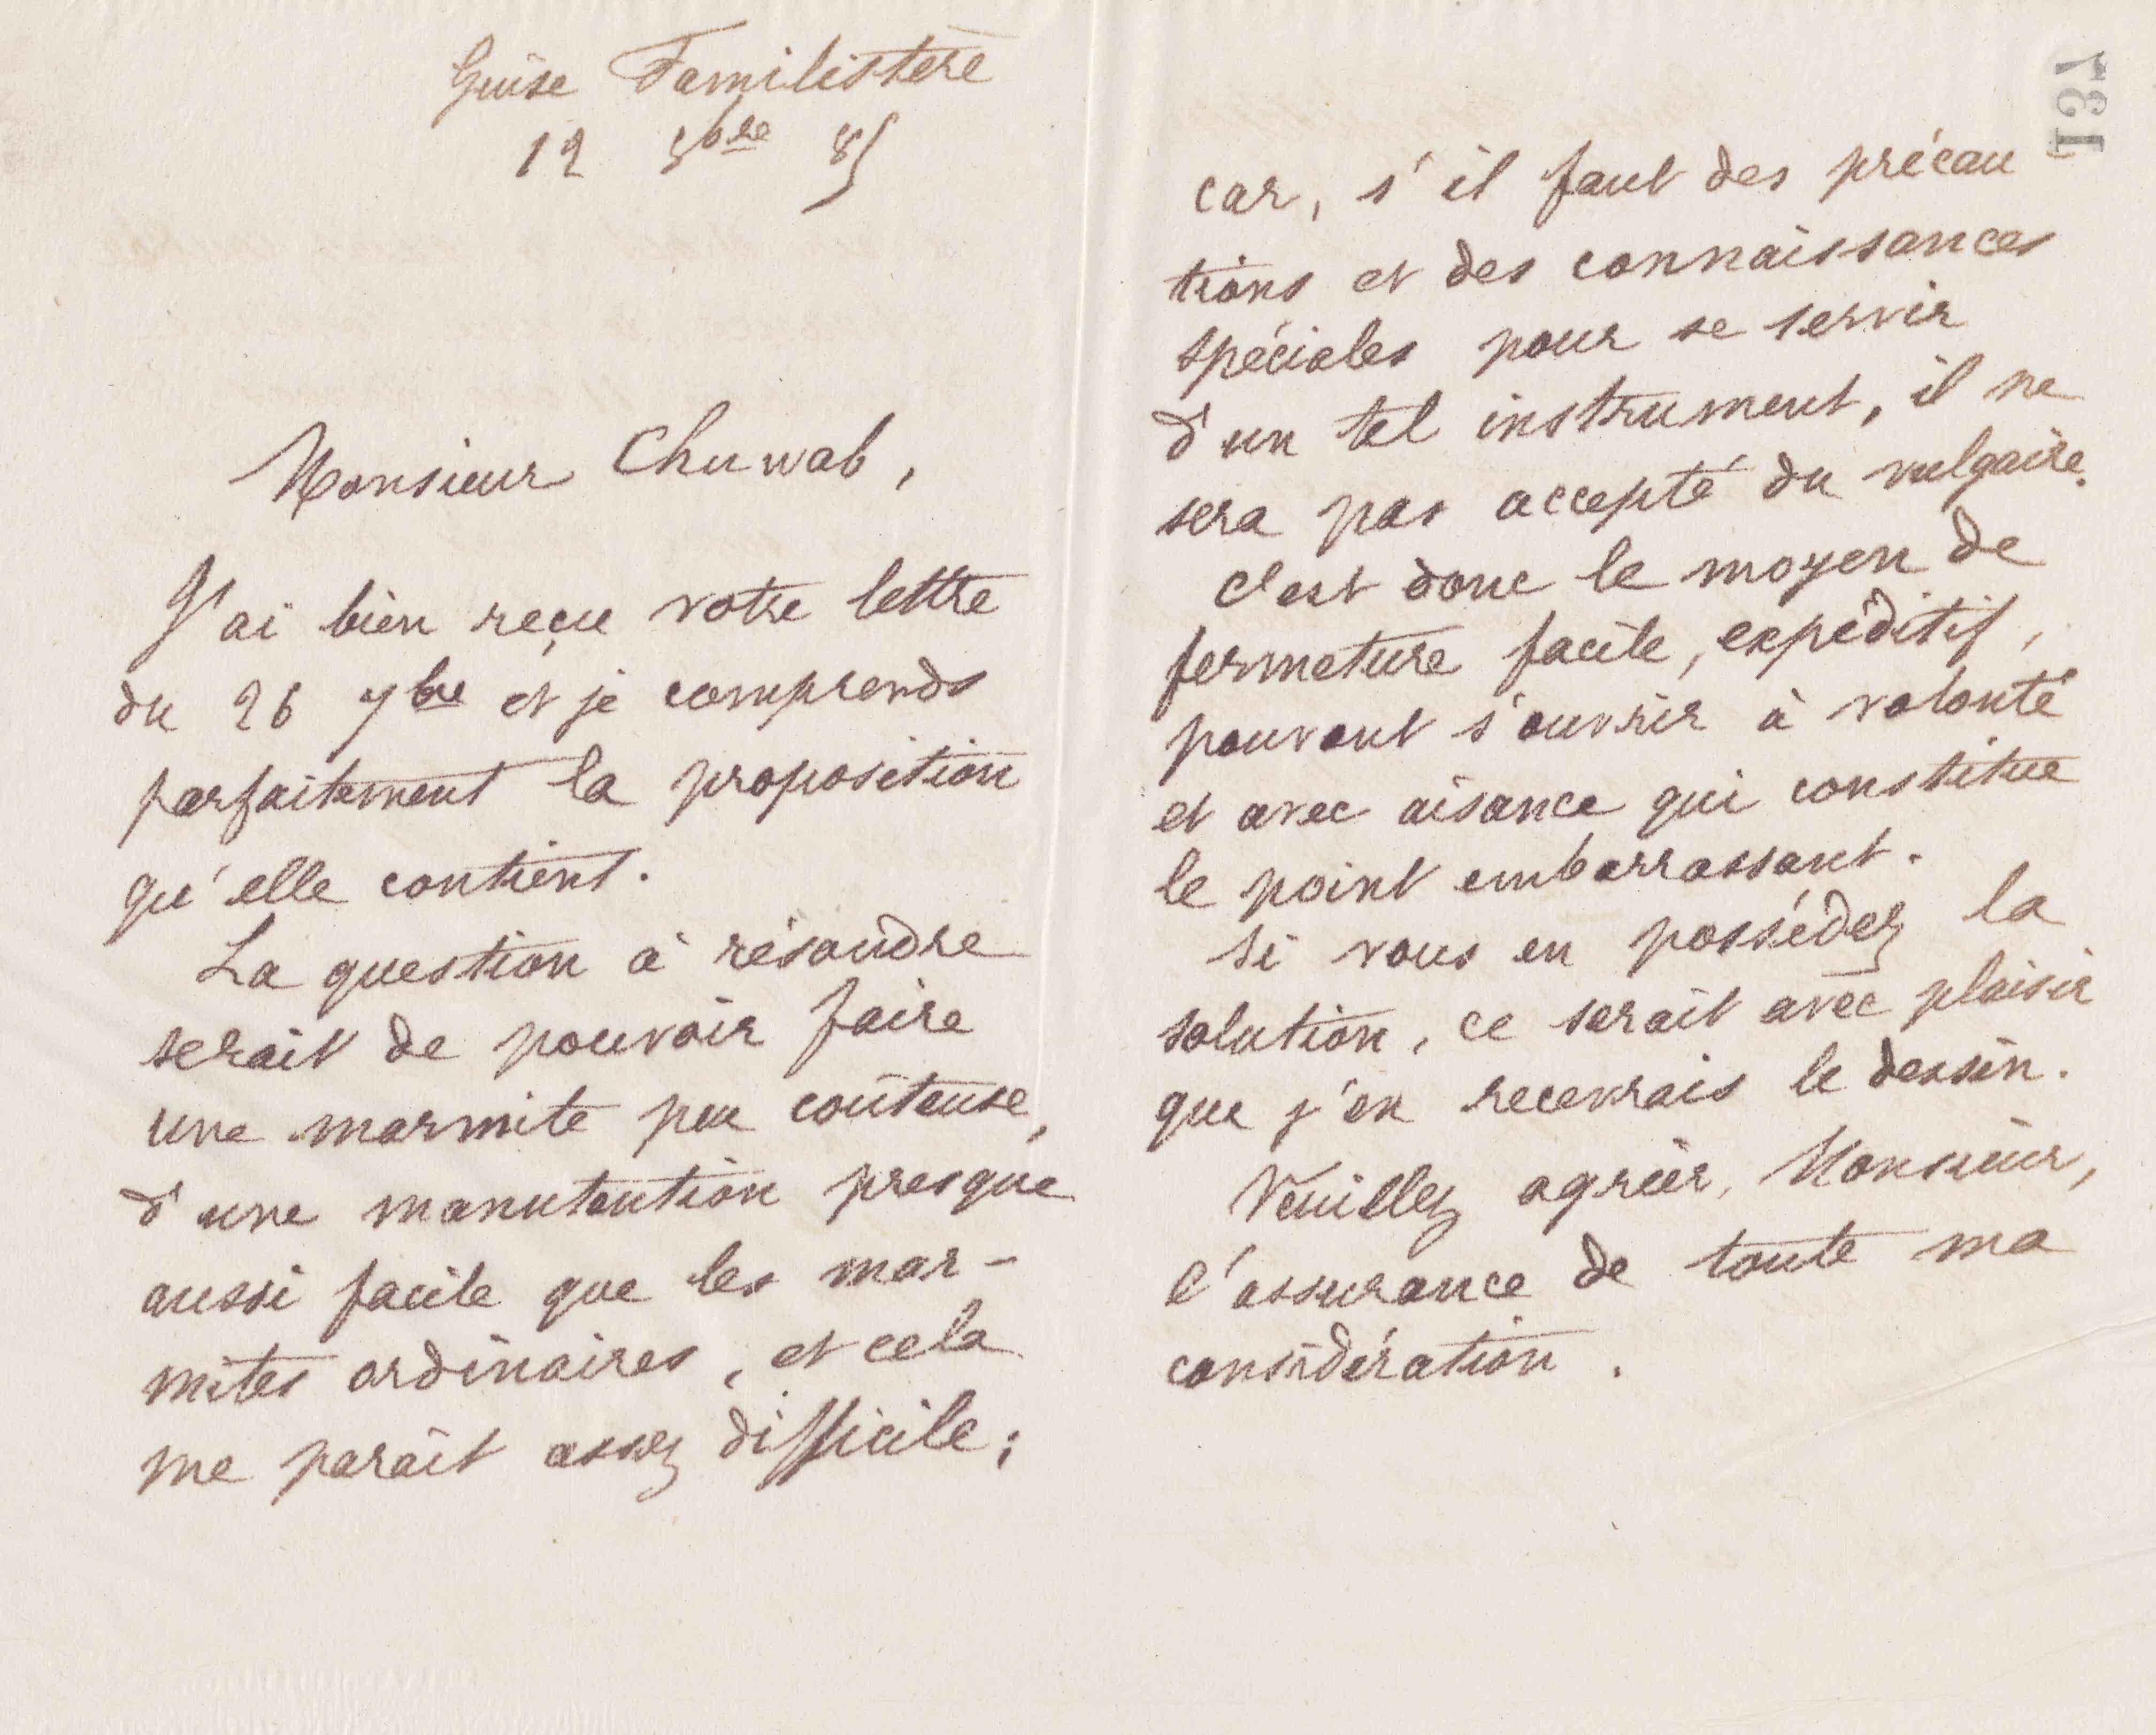 Guise Familistère
12 8bre 85
Monsieur Chuwab,
J'ai bien reçu votre lettre
du 26 7bre et je comprends
parfaitement la proposition
qu'elle contient.
La question à résoudre
serait de pouvoir faire
une marmite peu coûteuse,
d'une manutention presque
aussi facile que les mar-
mites ordinaires, et cela
me paraît assez difficile;
131
car, s'il faut des précau
tions et des connaissances
spéciales pour se servir
d'un tel instrument, il ne
sera pas accepté du vulgaire.
C'est donc le moyen de
fermeture facile, expéditif,
pouvant s'ouvrir à volonté
et avec aisance qui constitue
le point embarrassant.
Si vous en possédez la
solution, ce serait avec plaisir
que j'en recevrais le dessin.
Veuillez agréer, Monsieur,
l'assurance de toute ma
considération.